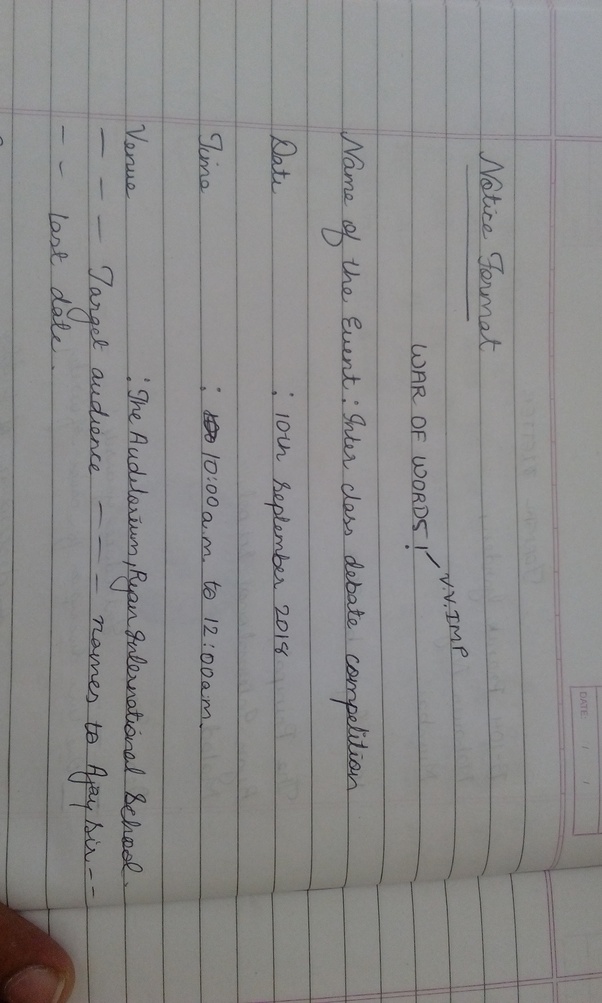 DATE / /
Notice Format
V.V.IMP
WAR OF WORDS!
Name of the Event : Inter class debate competition
Date : 10th September 2018
Time : 10:00 a.m. to 12:00 a.m.
Venue : The Auditorium, Ryan International School.
— — — Target audience — — — names to Ajay Sir. - -
- - last date.